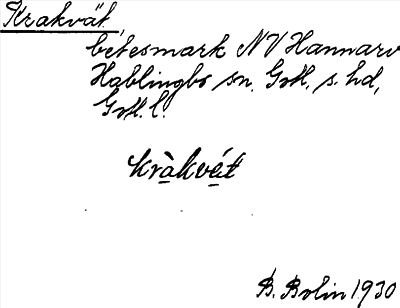 Krakvät,
betesmark NV Hannarv
Hablingbo sn. Gotl. s. hd,
Gotl. l.
kràkvát
B. Bolin 1930